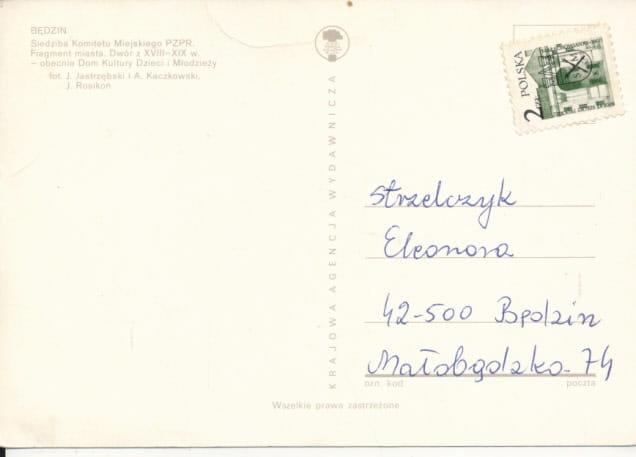 BĘDZIN
Siedziba Komitetu Miejskiego PZPR.
Fragment miasta. Dwór z XVIII—XIX w.
— obecnie Dom Kultury Dzieci i Młodzieży
fot. J. Jastrzębski i A. Kaczkowski,
J. Rosikoń
KRAJOWA AGENCJA WYDAWNICZA
POLSKA
2 ZŁ
Strzelczyk
Eleonora
42-500 Będzin
Małobądzka 74
ozn. kod
poczta
Wszelkie prawa zastrzeżone